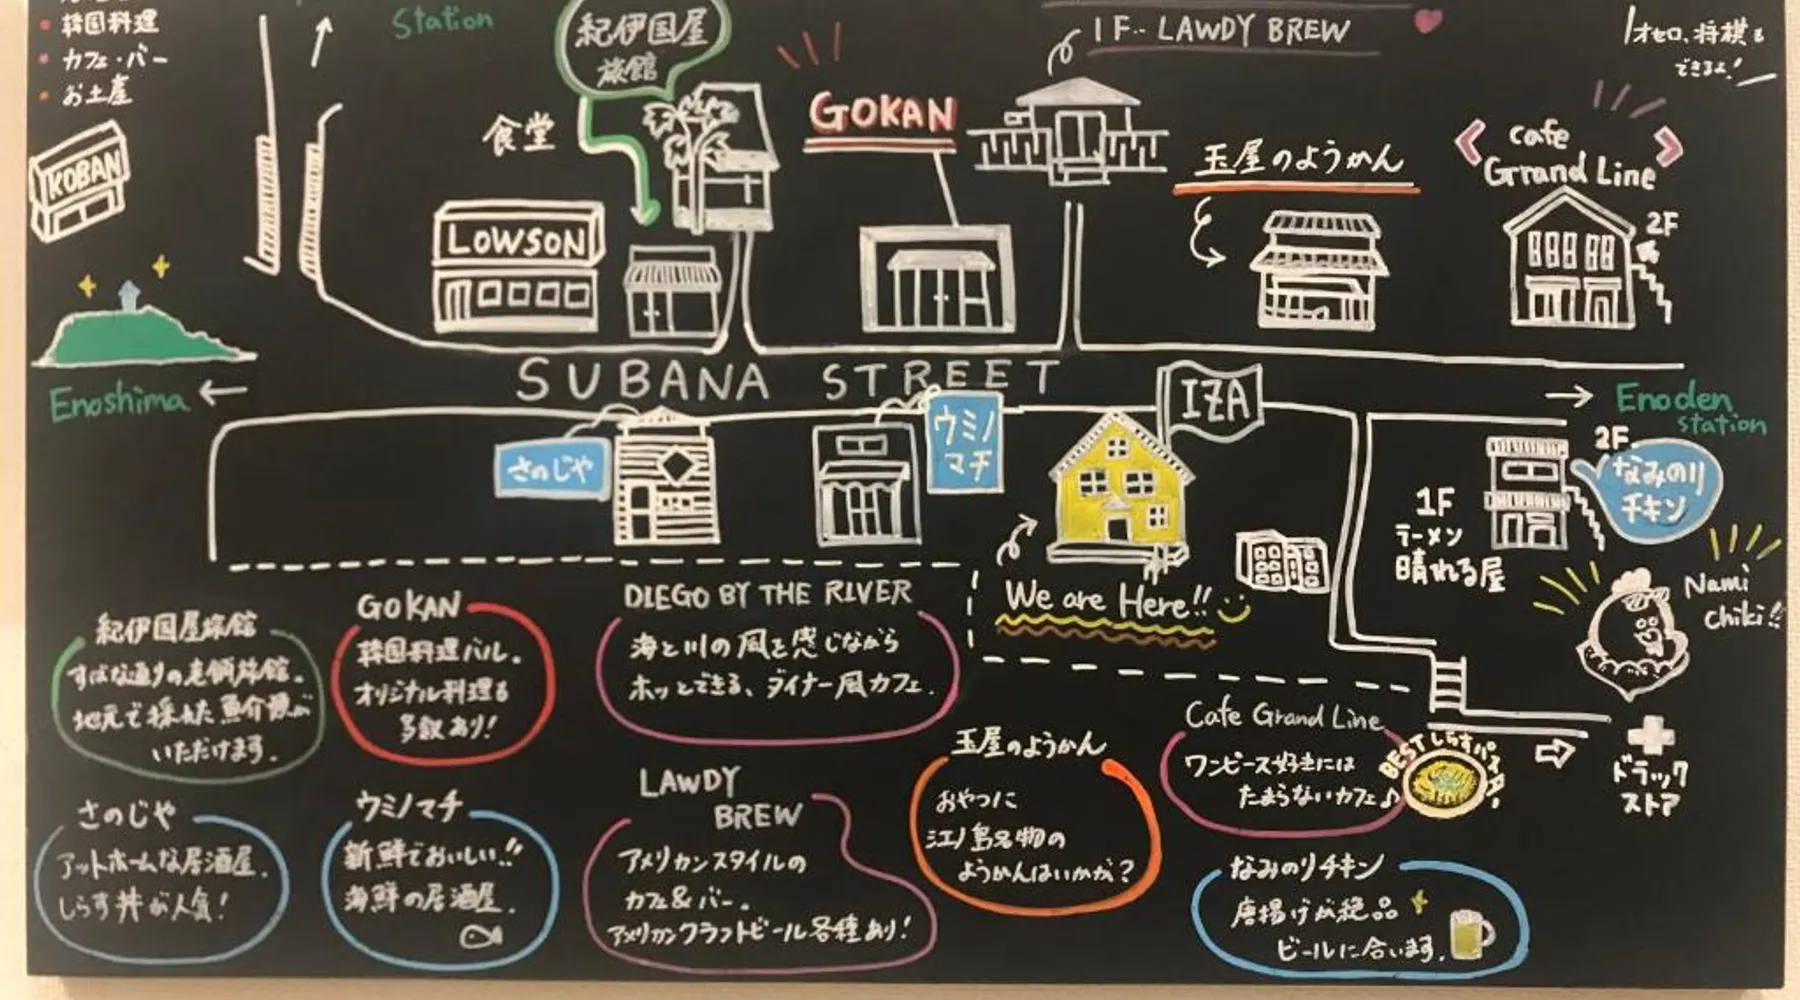 韓国料理
カフェ・バー
お土産
Station
紀伊国屋
旅館
1F‥ LAWDY BREW
オセロ、将棋も
できるよ!
KOBAN
食堂
GOKAN
玉屋のようかん
cafe
Grand Line
2F
LOWSON
SUBANA STREET
Enoshima ←
→ Enoden
station
さのじや
ウミノ
マチ
IZA
2F
なみのり
チキン
1F
ラーメン
晴れる屋
We are Here!!
Nami
chiki!!
紀伊国屋旅館
すばな通りの老舗旅館。
地元で採れた魚介類が
いただけます。
GOKAN
韓国料理バル。
オリジナル料理も
多数あり!
DIEGO BY THE RIVER
海と川の風を感じながら
ホッとできる、ダイナー風カフェ.
玉屋のようかん
おやつに
江ノ島名物の
ようかんはいかが?
Cafe Grand Line
ワンピース好きには
たまらないカフェ♪
BESTしらすパスタ!
ドラック
ストア
さのじや
アットホームな居酒屋.
しらす丼が人気!
ウミノマチ
新鮮でおいしい!!
海鮮の居酒屋.
LAWDY
BREW
アメリカンスタイルの
カフェ&バー。
アメリカンクラフトビール各種あり!
なみのりチキン
唐揚げが絶品
ビールに合います.